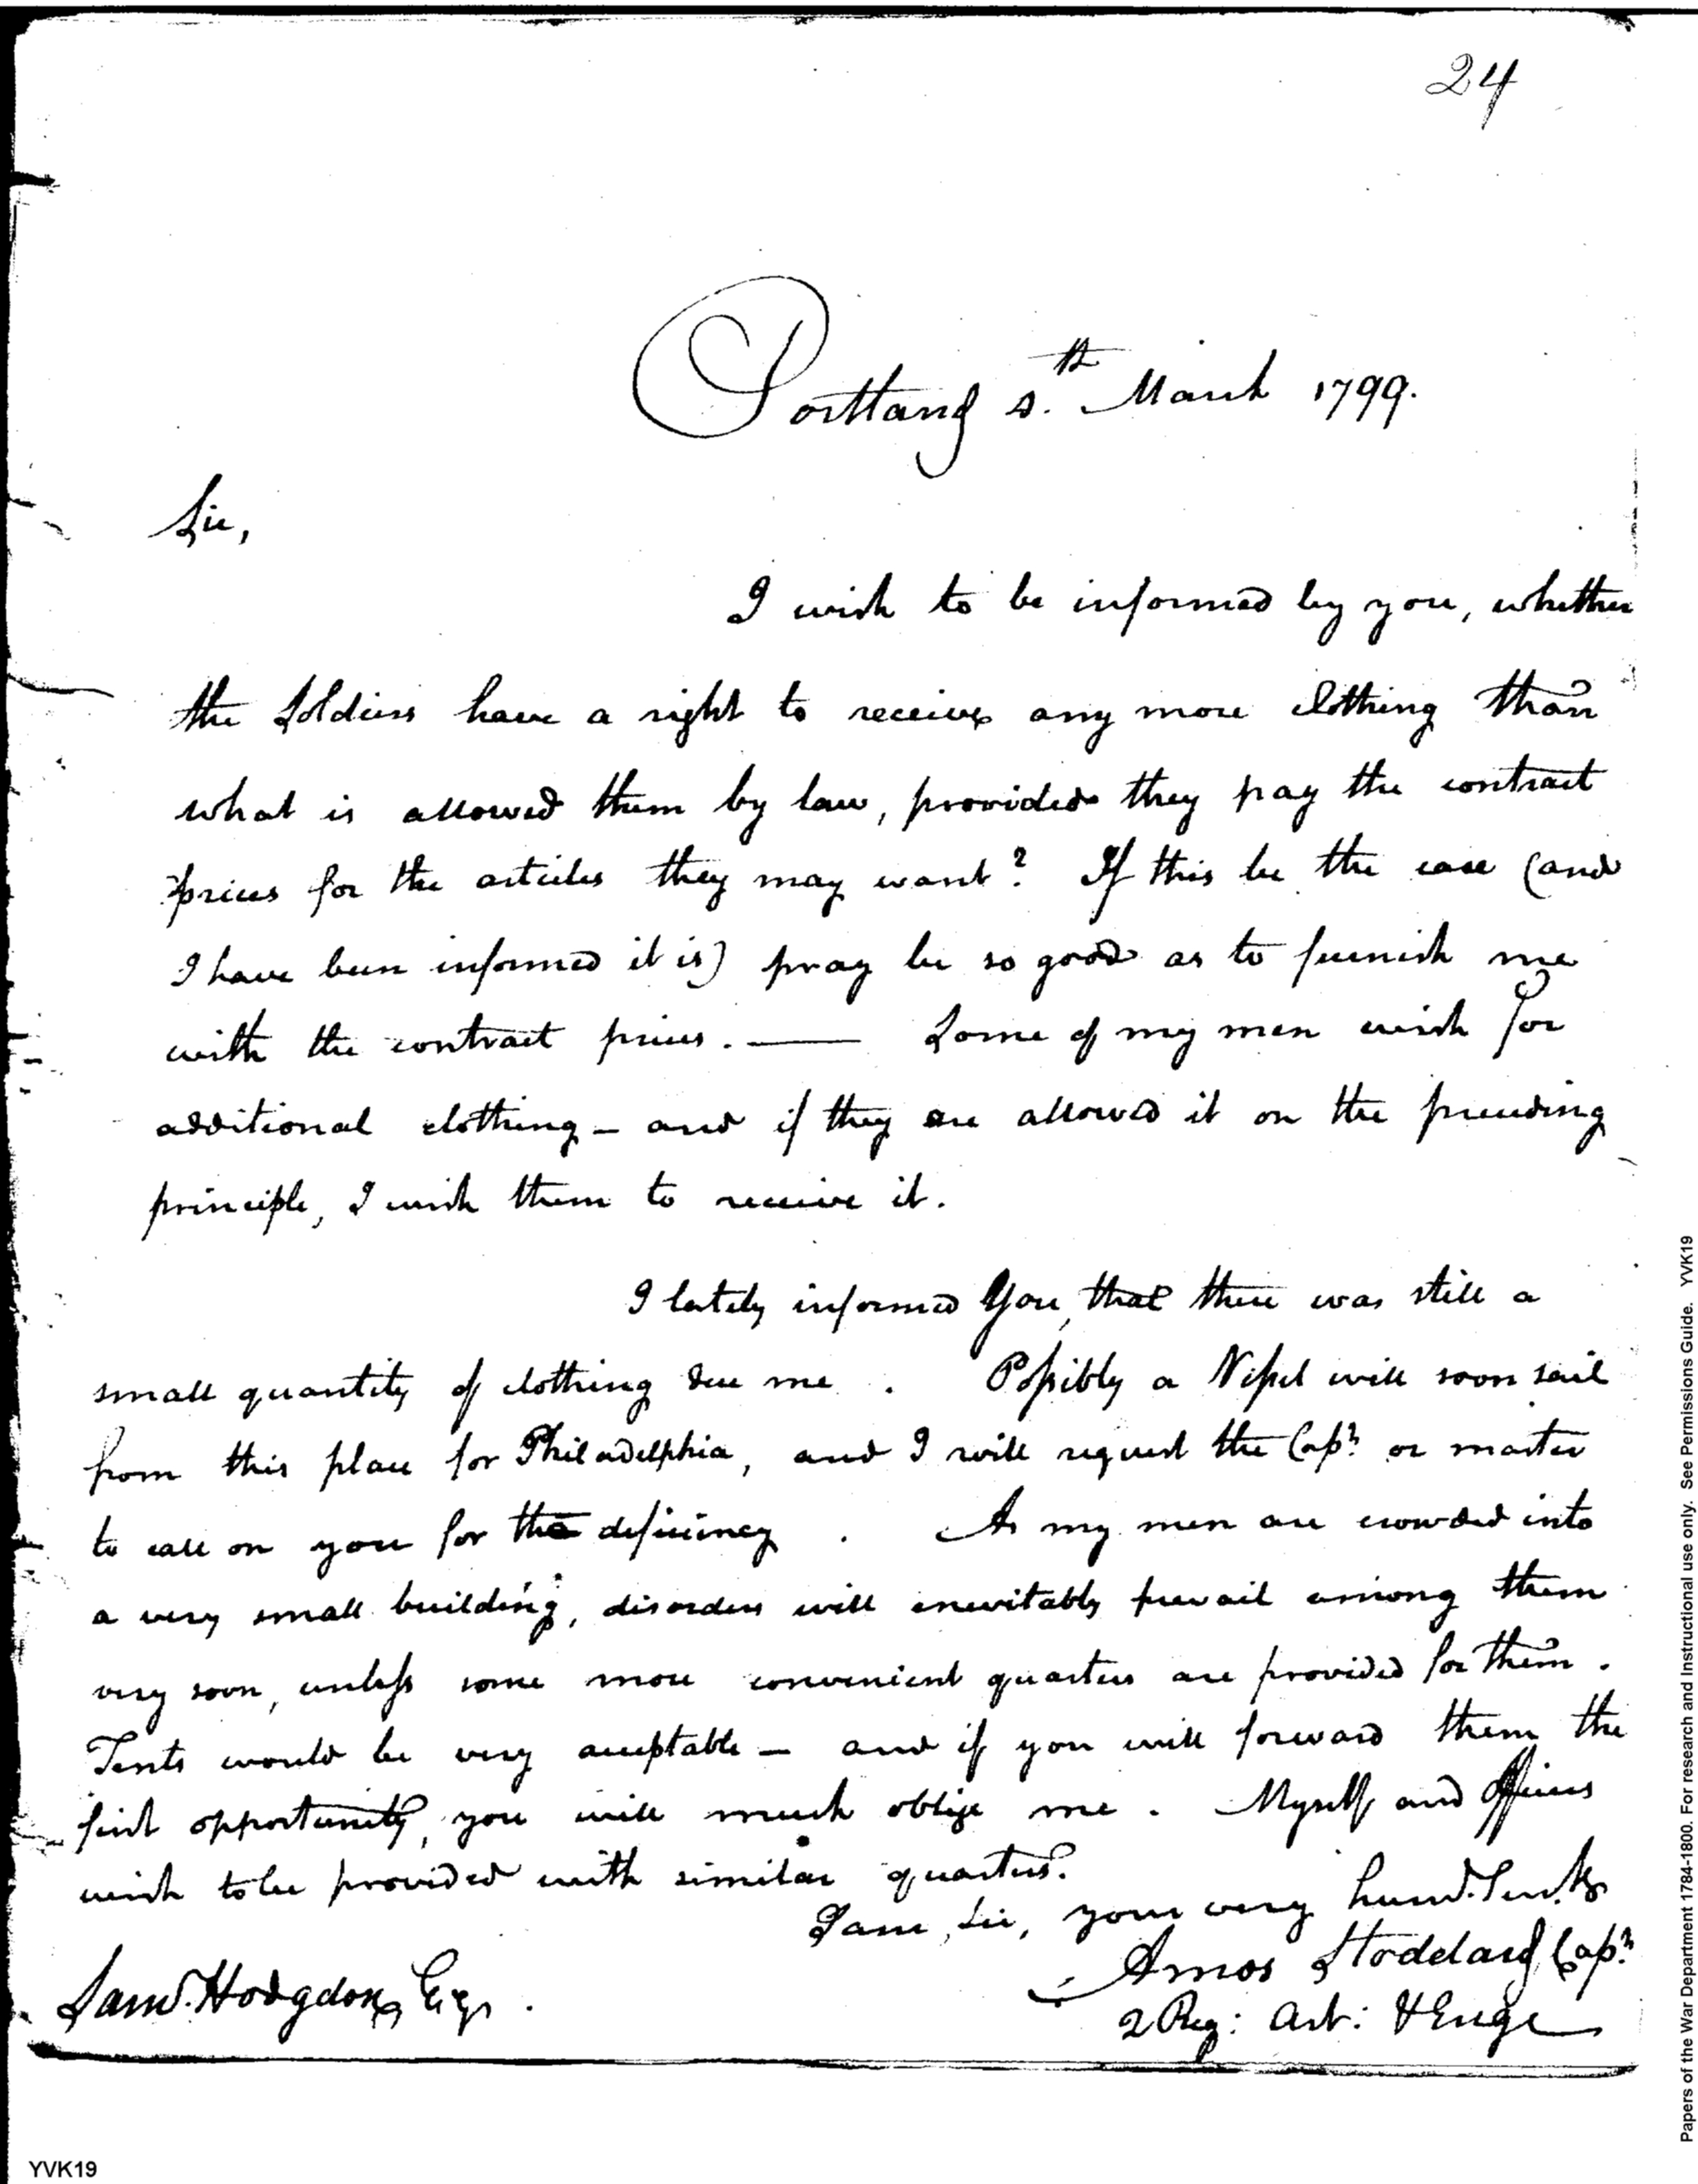 24
Portland 8.th March 1799.
Sir,
I wish to be informed by you, whether
the Soldiers have a right to receive any more clothing than
what is allowed them by law, provided they pay the contract
prices for the articles they may want? If this be the case (and
I have been informed it is) pray be so good as to furnish me
with the contract prices. — Some of my men wish for
additional clothing — and if they are allowed it on the preceeding
principle, I wish them to receive it.
I lately informed You, that there was still a
small quantity of clothing due me. Possibly a Vessel will soon sail
from this place for Philadelphia, and I will request the Capn. or master
to call on you for the deficiency. As my men are crowded into
a very small building, disorders will inevitably prevail among them
very soon, unless some more convenient quarters are provided for them.
Tents would be very acceptable — and if you will forward them the
first opportunity, you will much oblige me. Myself and Officers
wish to be provided with similar quarters.
I am, Sir, your very hume. Servt.
Amos Stoddard Capn.
2 Reg: Art: & Enge
Saml. Hodgdon, Esqr.
YVK19
Papers of the War Department 1784-1800. For research and Instructional use only. See Permissions Guide. YVK19